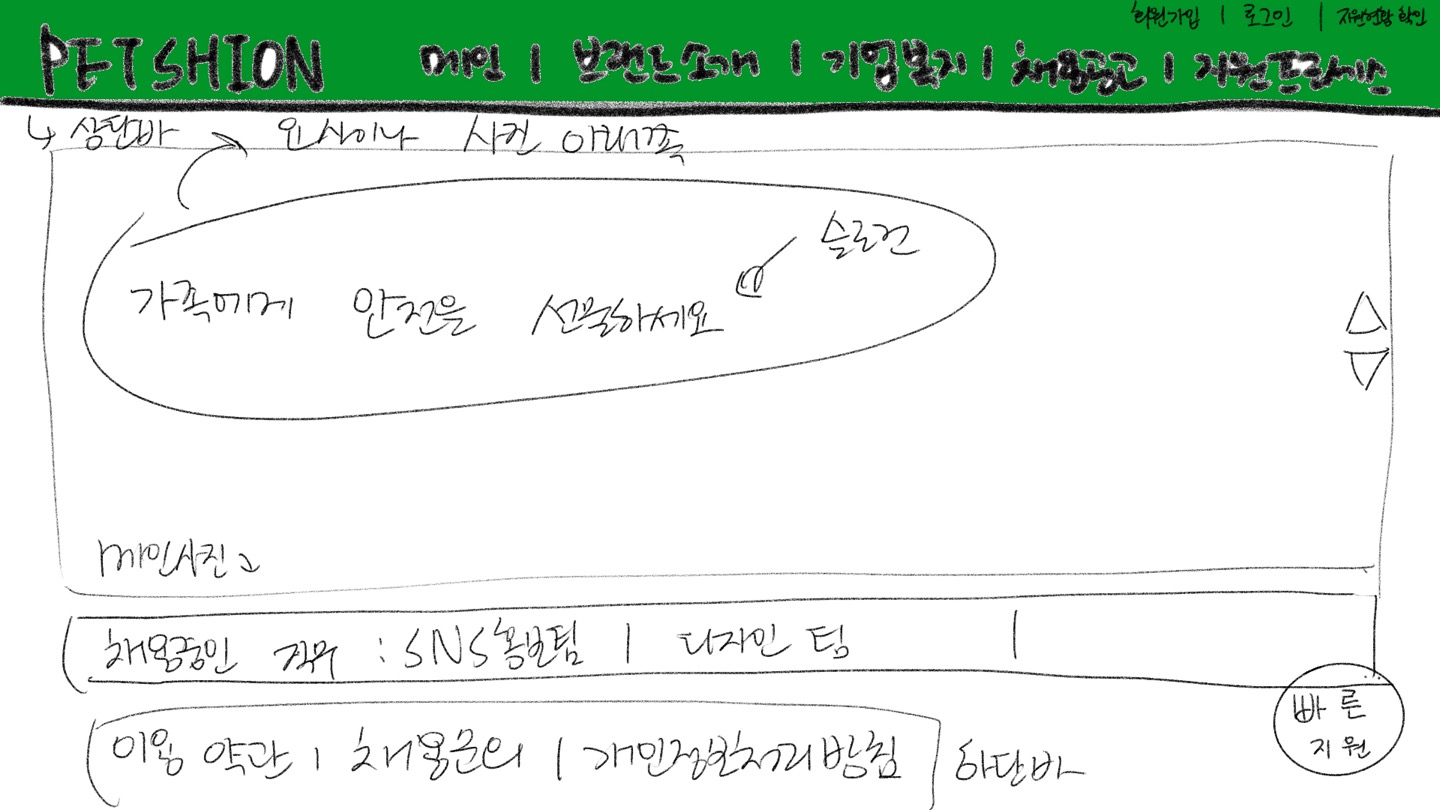 회원가입 | 로그인 | 지원현황 확인
PETSHION 메인 | 브랜드소개 | 기업복지 | 채용공고 | 지원프로세스
↳ 상단바 → 요 사이나 사진 아래쪽
슬로건
가족에게 안전을 선물하세요
△
▽
메인사진2
채용중인 직무 : SNS홍보팀 | 디자인 팀 |
빠른
지원
이용 약관 | 채용문의 | 개인정보처리방침 하단바